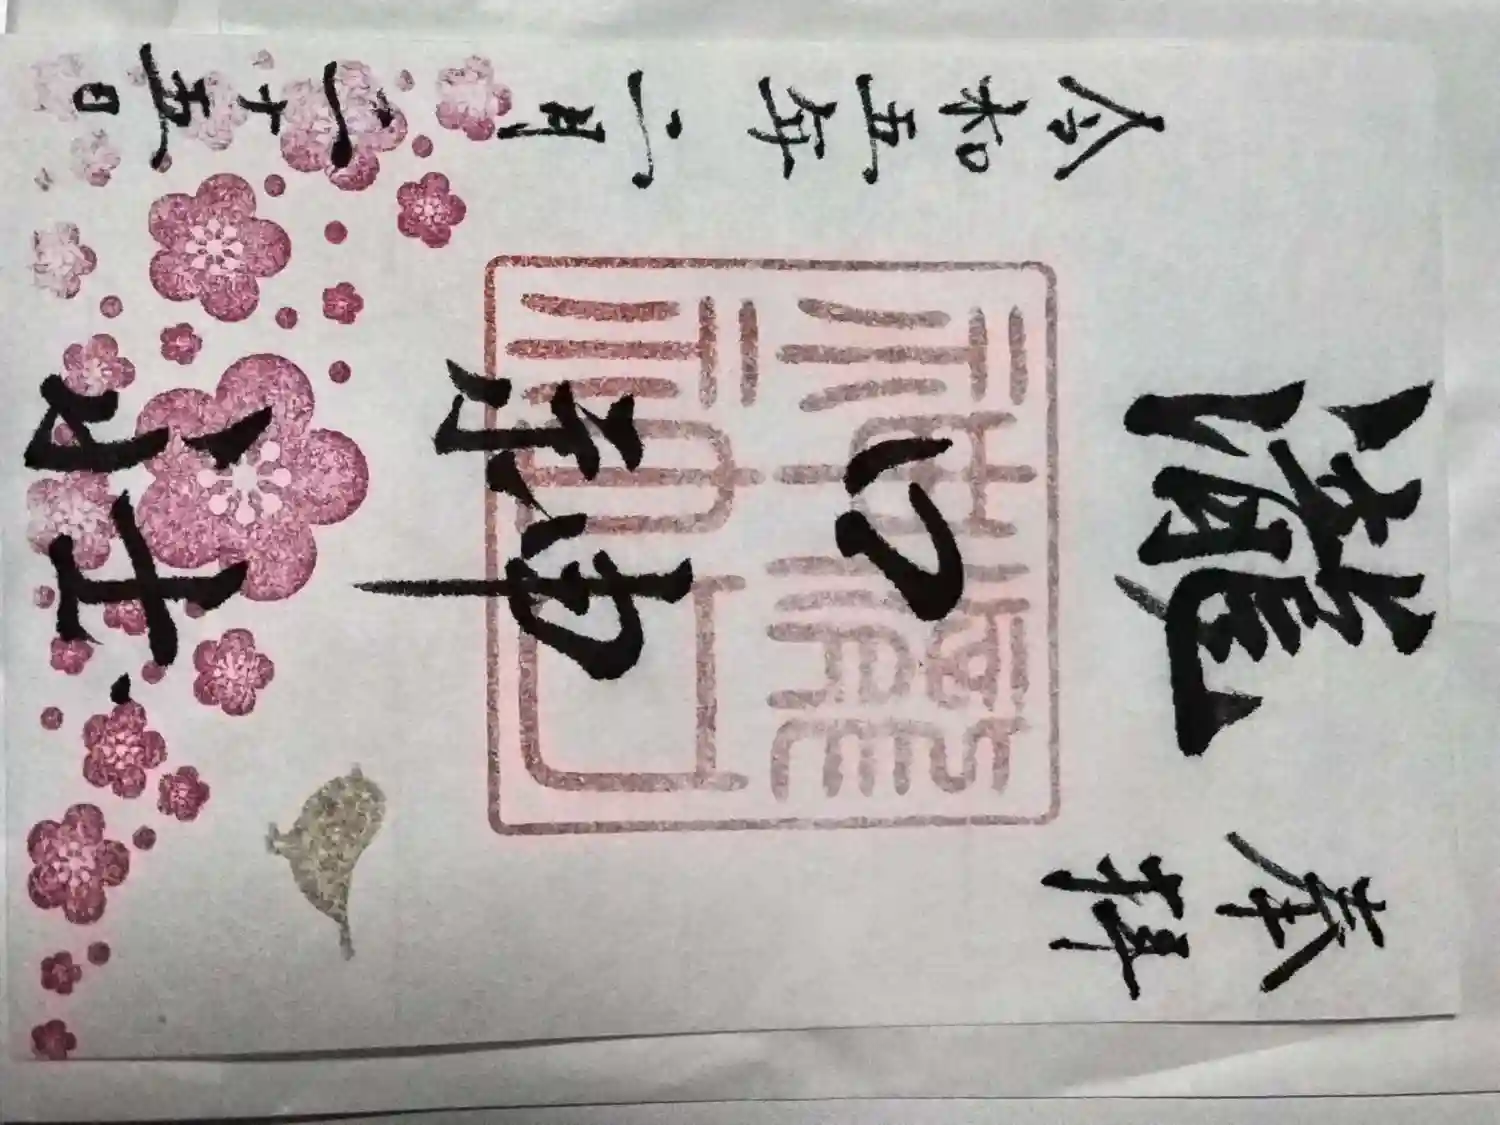 奉拝
瀧口神社
瀧口
神社
令和五年二月二十五日